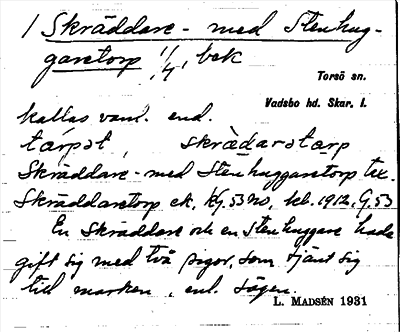 1 Skräddare- med Stenhug-
garetorp 1/1, 1/4, bek
Torsö sn.
Vadsbo hd. Skar. l.
kallas vanl. end.
tárpət, skrädarətarp
Skräddare- med Stenhuggaretorp tex.
Skräddaretorp ek. Kg. 53 no, 1912, G. 53
En skräddare och en stenhuggare hade
gift sig med två pigor, som tjänt sig
till marken, enl. sägen.
L. MADSÉN 1931